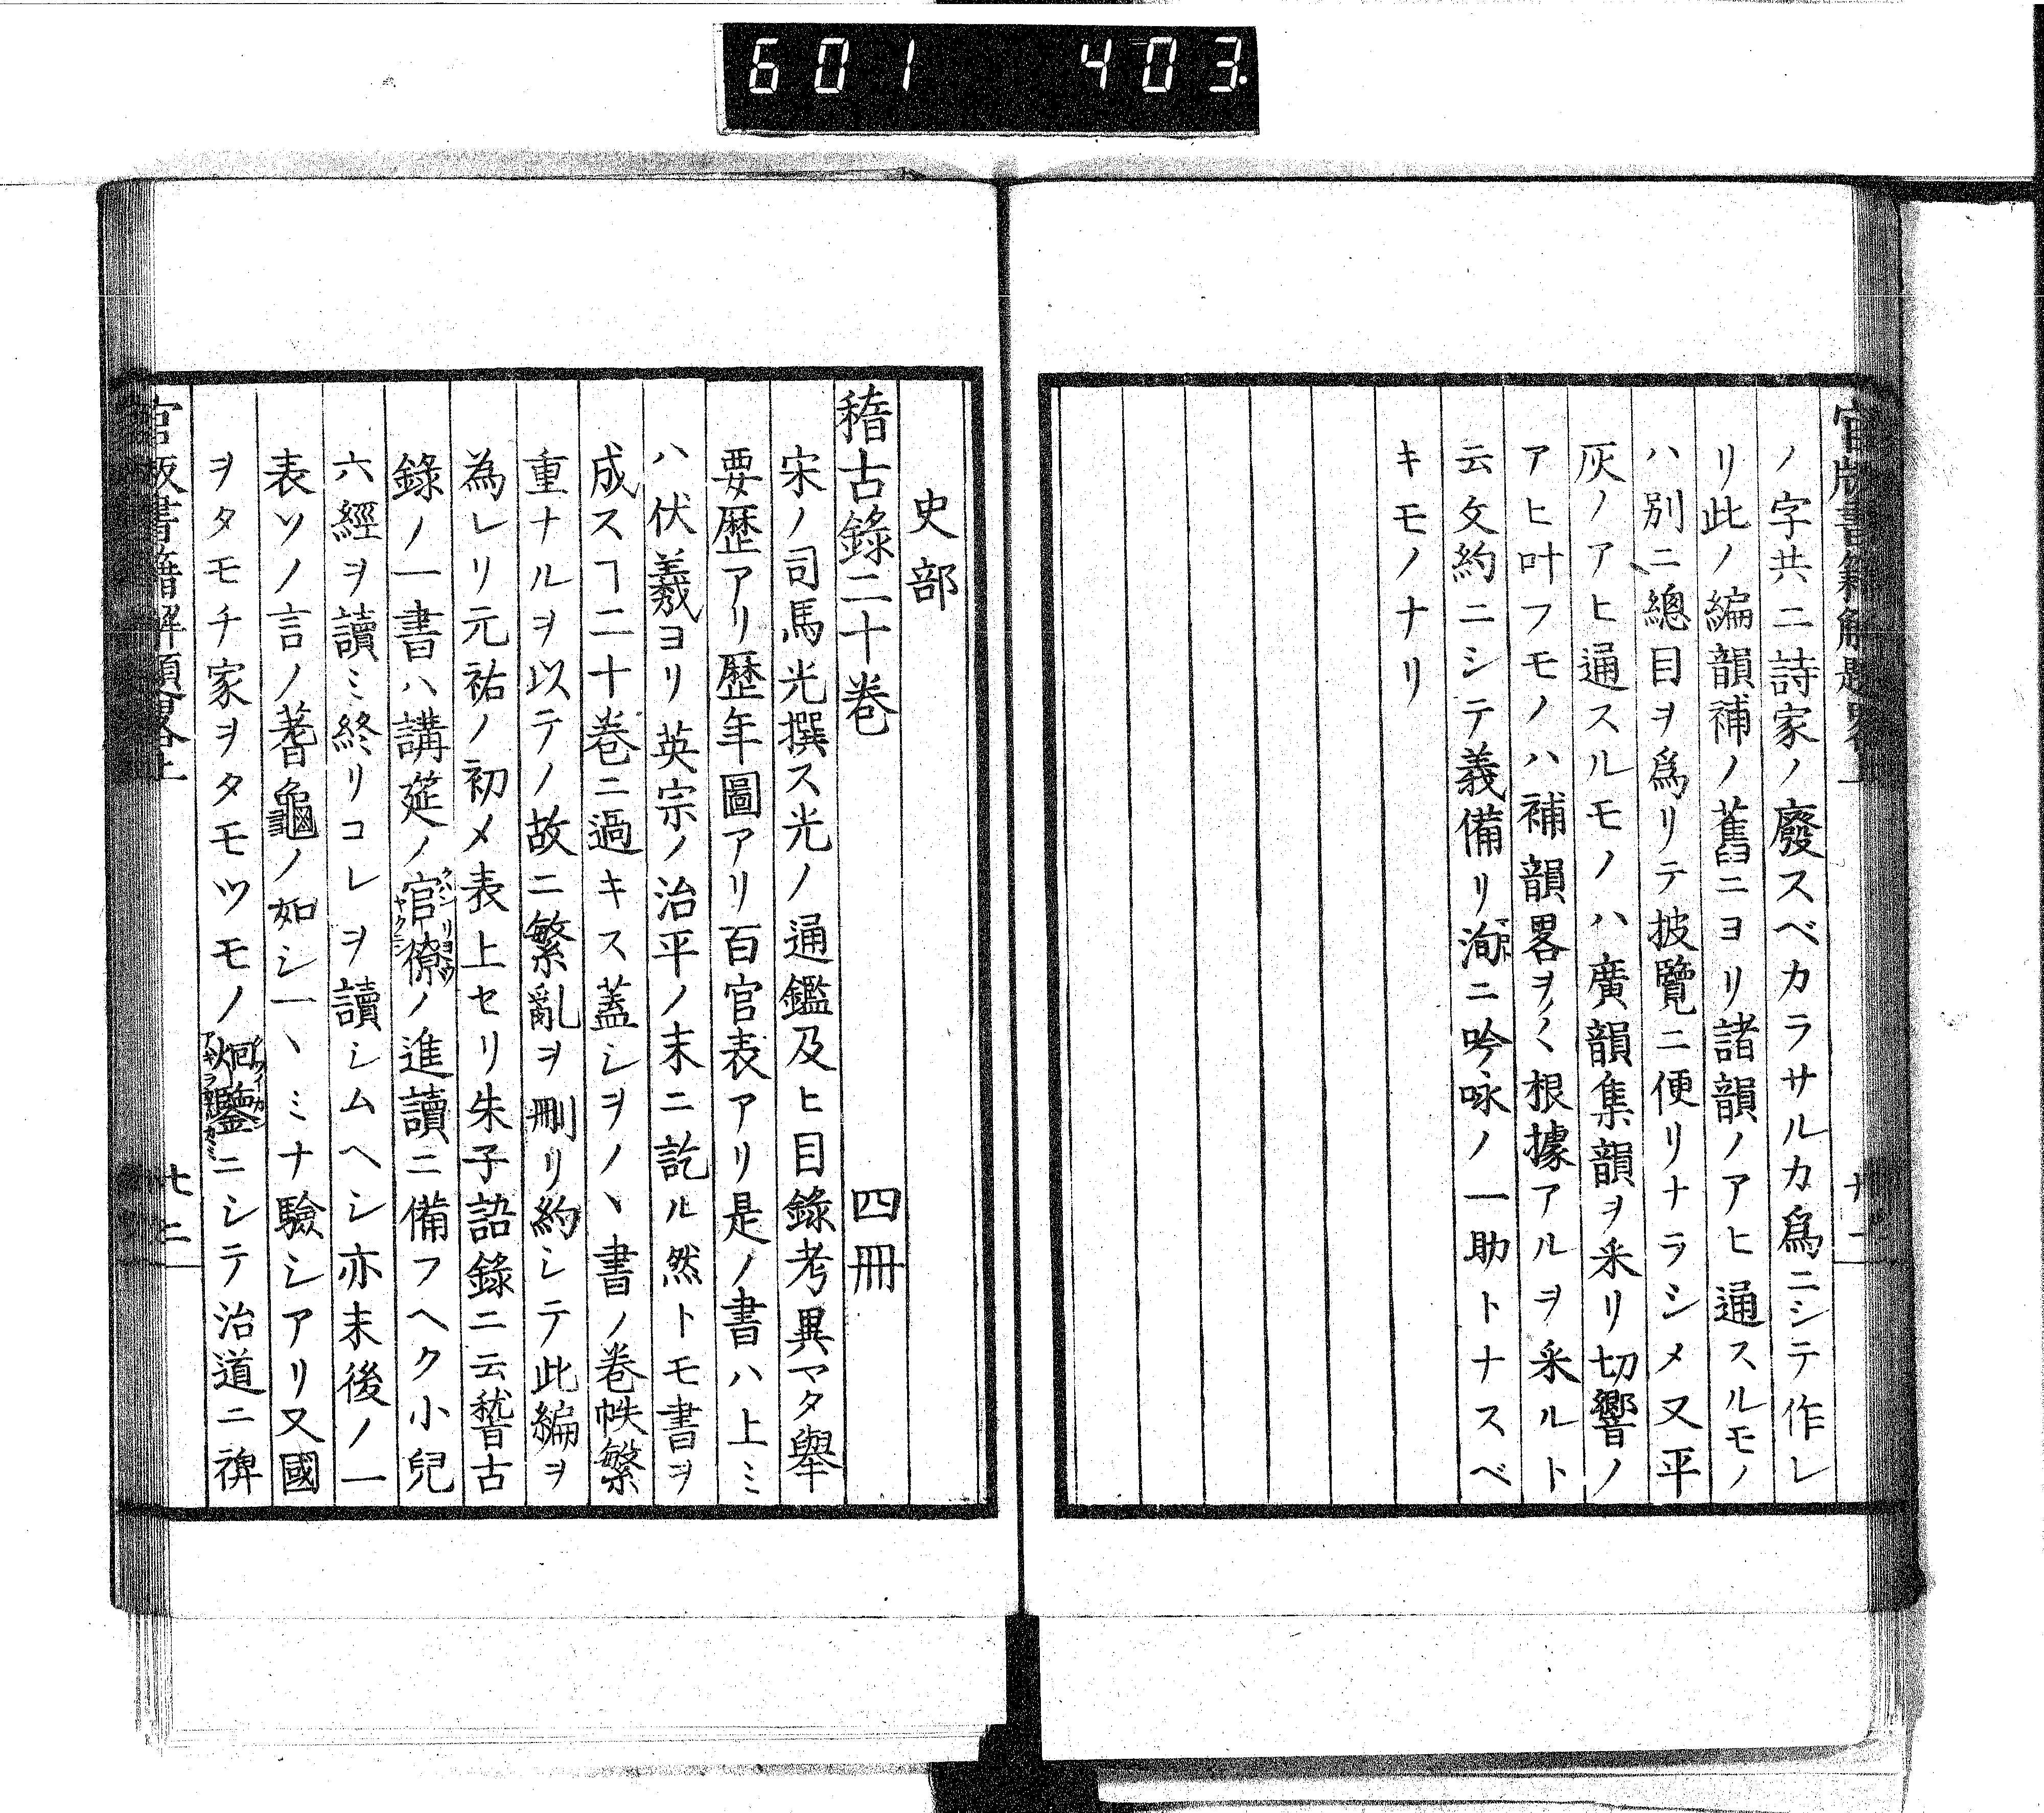 601 403.
官版書籍解題畧上
ノ字共ニ詩家ノ廢スベカラサルカ爲ニシテ作レ
リ此ノ編韻補ノ舊ニヨリ諸韻ノアヒ通スルモノ
ハ別ニ總目ヲ爲リテ披覽ニ便リナラシメ又平
灰ノアヒ通スルモノハ廣韻集韻ヲ采リ切響ノ
アヒ叶フモノハ補韻畧ヲノ〱根據アルヲ采ルト
云文約ニシテ義備リ洵ニ吟咏ノ一助トナスベ
キモノナリ
史部
稽古錄二十巻 四冊
宋ノ司馬光撰ス光ノ通鑑及ヒ目錄考異マタ舉
要歷アリ歷年圖アリ百官表アリ是ノ書ハ上ミ
ハ伏羲ヨリ英宗ノ治平ノ末ニ訖ル然トモ書ヲ
成スヿ二十巻ニ過キス蓋シヲノヽ書ノ巻帙繁
重ナルヲ以テノ故ニ繁亂ヲ刪リ約シテ此編ヲ
為レリ元祐ノ初メ表上セリ朱子語錄ニ云稽古
錄ノ一書ハ講筵ノ官僚ノ進讀ニ備フヘク小兒
六經ヲ讀ミ終リコレヲ讀シムヘシ亦末後ノ一
表ソノ言ノ蓍龜ノ如シ一ヽミナ驗シアリ又國
ヲタモチ家ヲタモツモノ炯鑒ニシテ治道ニ裨
官板書籍解題畧上
七二